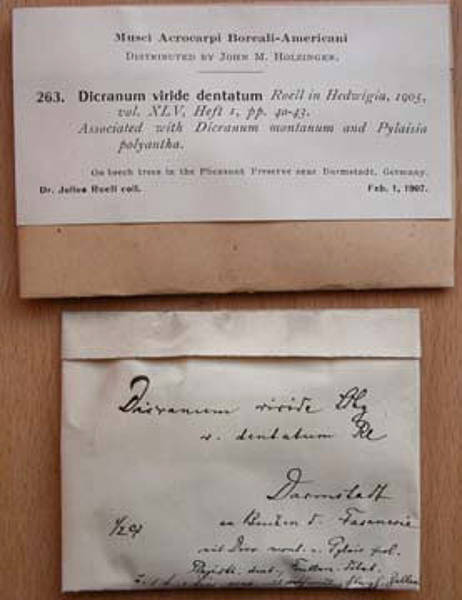 Musci Acrocarpi Boreali-Americani
Distributed by John M. Holzinger.
263. Dicranum viride dentatum Roell in Hedwigia, 1905,
vol. XLV, Heft 1, pp. 40-43.
Associated with Dicranum montanum and Pylaisia
polyantha.
On beech trees in the Pheasant Preserve near Darmstadt, Germany.
Dr. Julius Roell coll. Feb. 1, 1907.
Dicranum viride
v. dentatum Rl
Darmstadt
an Buchen d. Fasanerie
mit Dicr. mont. u. Pylais. pol.